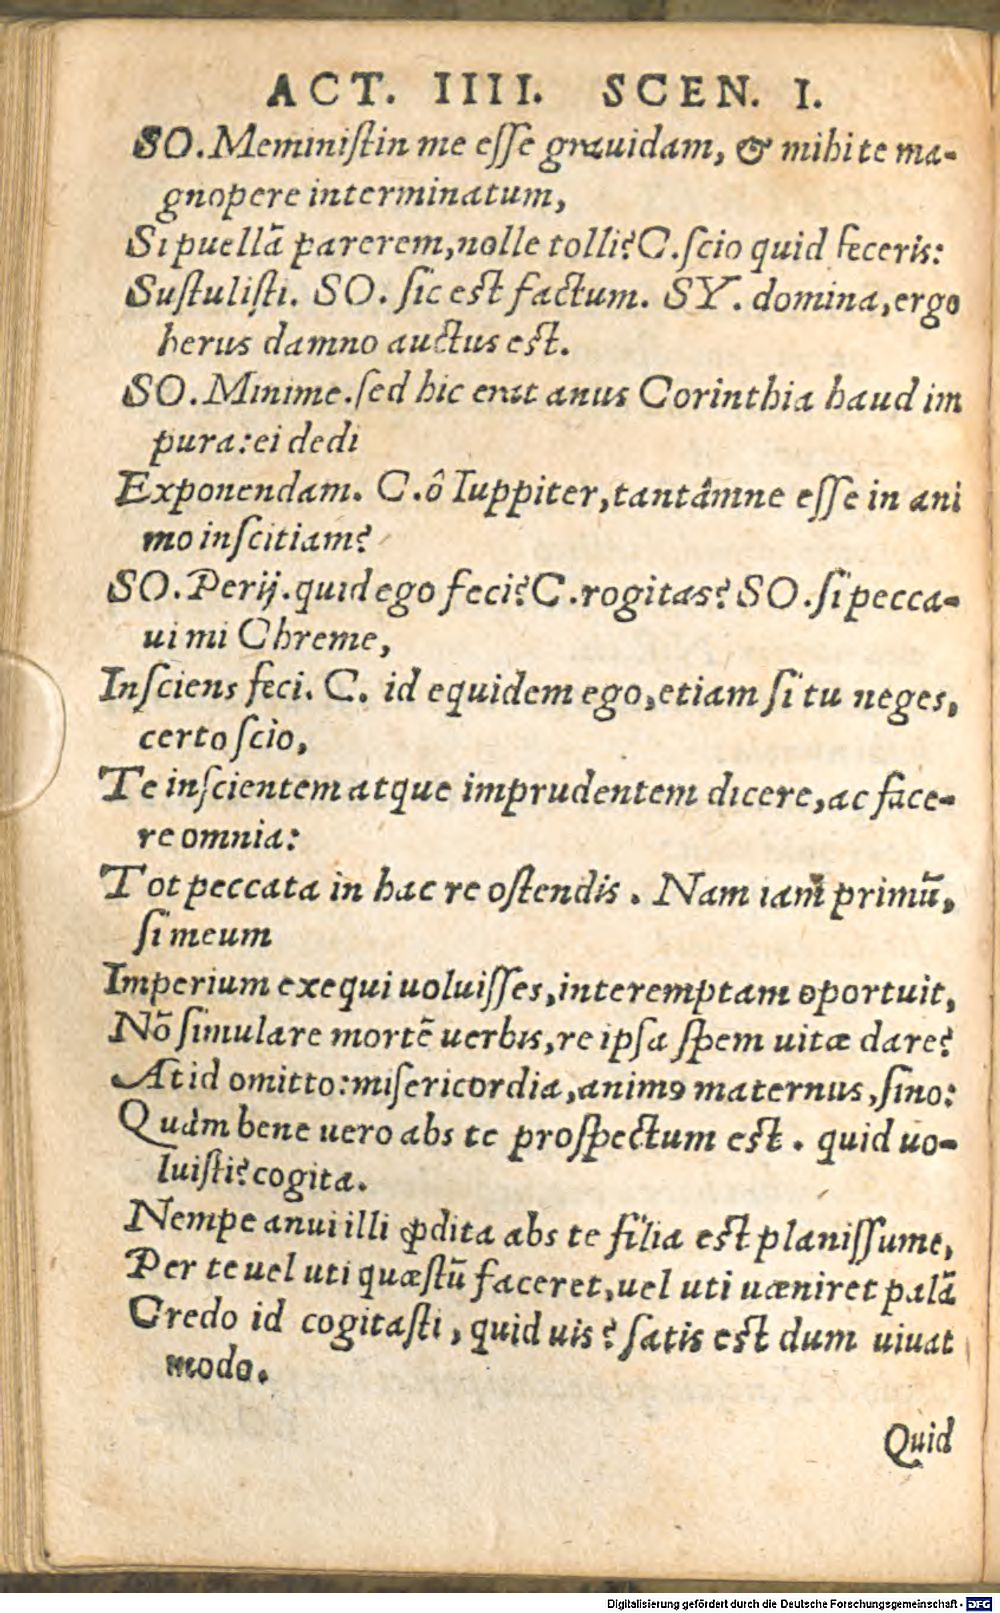 ACT. IIII. SCEN. I.
SO. Meministin me eſſe grauidam, & mihi te ma-
gnopere interminatum,
Si puellā parerem, nolle tolli? C. ſcio quid feceris:
Suſtuliſti. SO. ſic eſt factum. SY. domina, ergo
herus damno auctus eſt.
SO. Minime. ſed hic erat anus Corinthia haud im
pura: ei dedi
Exponendam. C. ô Iuppiter, tantámne eſſe in ani
mo inſcitiam?
SO. Perij. quid ego feci? C. rogitas? SO. ſi pecca-
ui mi Chreme,
Inſciens feci. C. id equidem ego, etiam ſi tu neges,
certo ſcio,
Te inſcientem atque imprudentem dicere, ac face-
re omnia:
Tot peccata in hac re oſtendis. Nam iam primū,
ſi meum
Imperium exequi uoluiſſes, interemptam oportuit,
Nō ſimulare mortē uerbis, re ipſa ſpem uitæ dare?
At id omitto: miſericordia, animꝰ maternus, ſino:
Quàm bene uero abs te proſpectum eſt. quid uo-
luiſti? cogita.
Nempe anui illi ꝓdita abs te filia eſt planiſſume,
Per te uel uti quæſtū faceret, uel uti uæniret palā
Credo id cogitaſti, quid uis? ſatis eſt dum uiuat
modo.
Quid
Digitalisierung gefördert durch die Deutsche Forschungsgemeinschaft - DFG